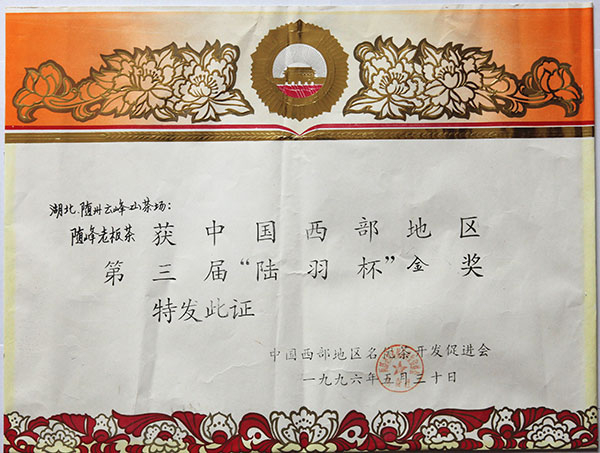 湖北随州云峰山茶场:
随峰老板茶 获中国西部地区
第三届“陆羽杯”金奖
特发此证
中国西部地区名优茶开发促进会
一九九六年五月三十日